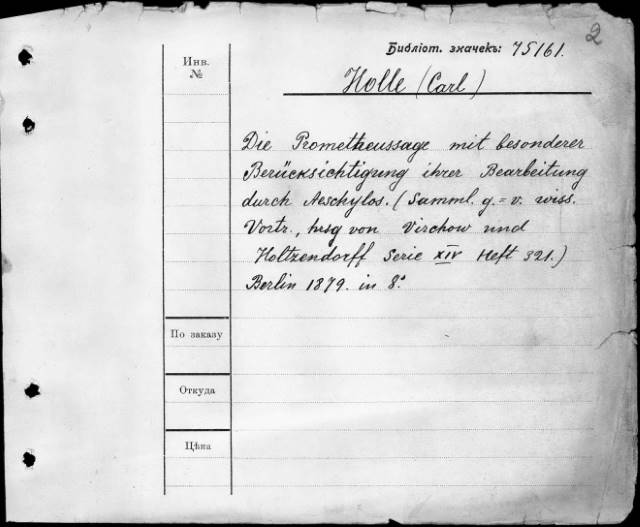 2
Библіот. значекъ: 75161.
Инв.
№
Holle (Carl)
Die Prometheussage mit besonderer
Berücksichtigung ihrer Bearbeitung
durch Aeschylos. (Samml. g.=v. wiss.
Vortr., hrsg von Virchow und
Holtzendorff Serie XIV Heft 321.)
Berlin 1879. in 8°.
По заказу
Откуда
Цѣна